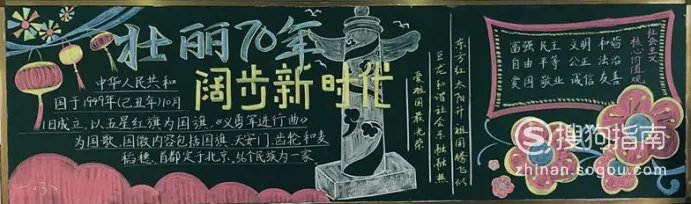 壮丽70年
阔步新时代
中华人民共和
国于1949年(乙丑年)10月
1日成立,以五星红旗为国旗,《义勇军进行曲》
为国歌,国徽内容包括国旗、天安门、齿轮和麦
稻穗,首都定于北京,56个民族为一家
东方红 太阳升 祖国腾飞似
巨龙和谐社会乐融融
爱祖国最光荣
社会主义
核心价值观
富强 民主 文明 和谐
自由 平等 公正 法治
爱国 敬业 诚信 友善
搜狗指南
zhinan.sogou.com